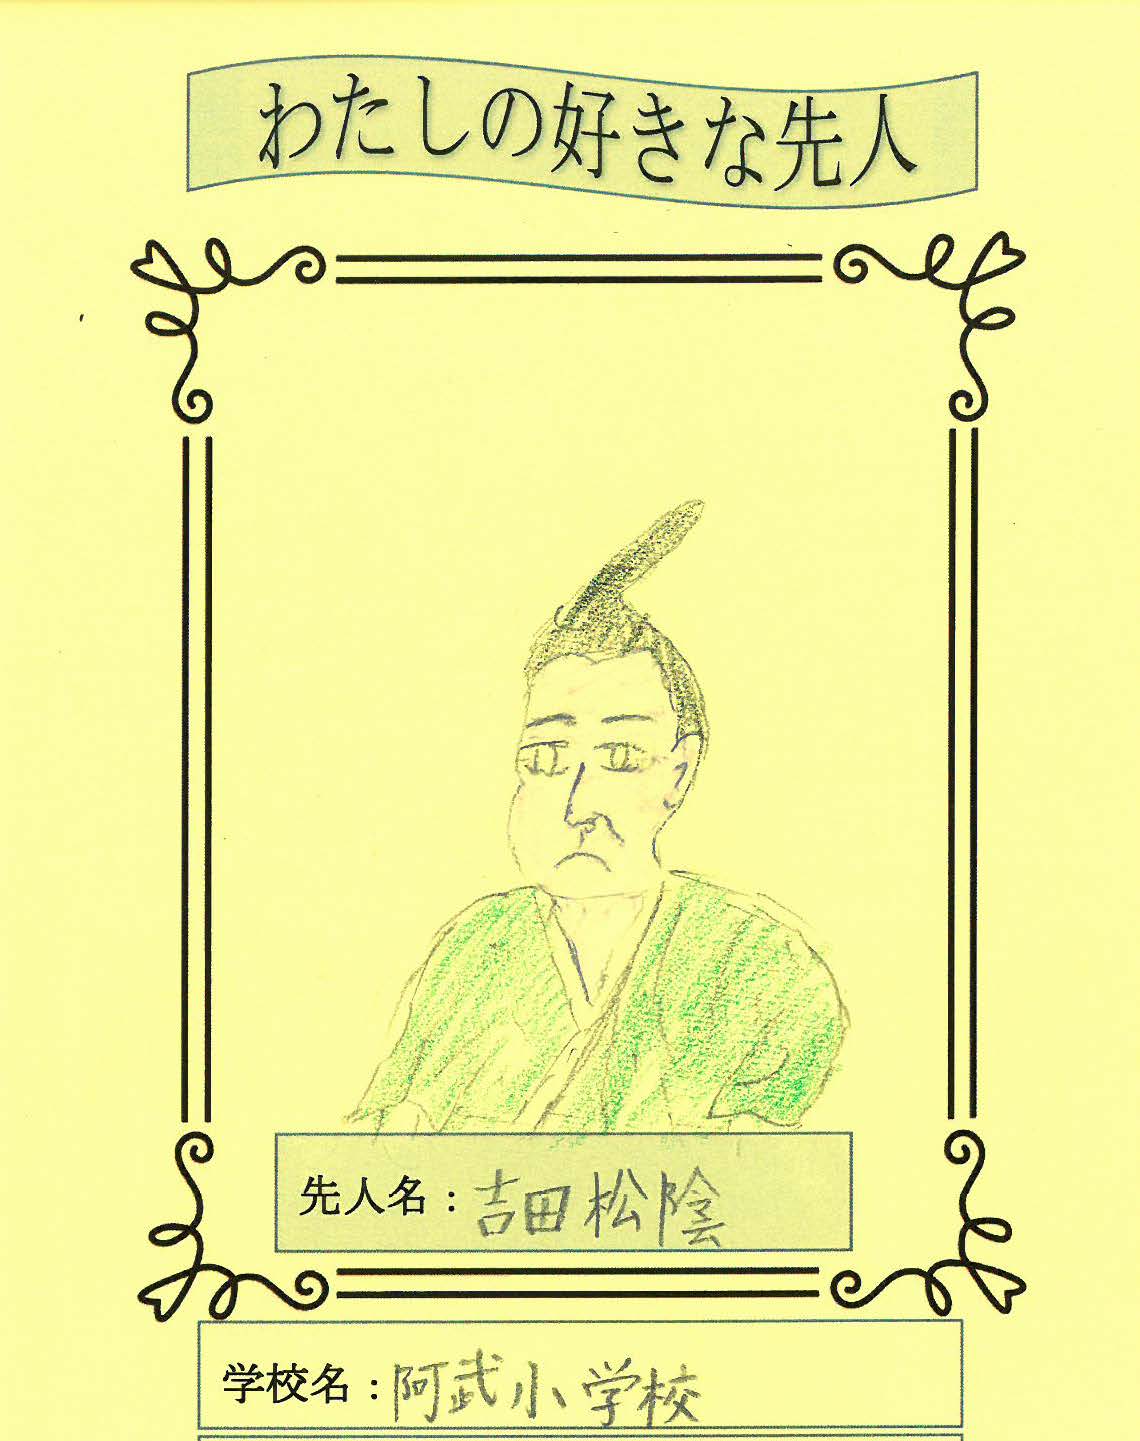 わたしの好きな先人
先人名：吉田松陰
学校名：阿武小学校